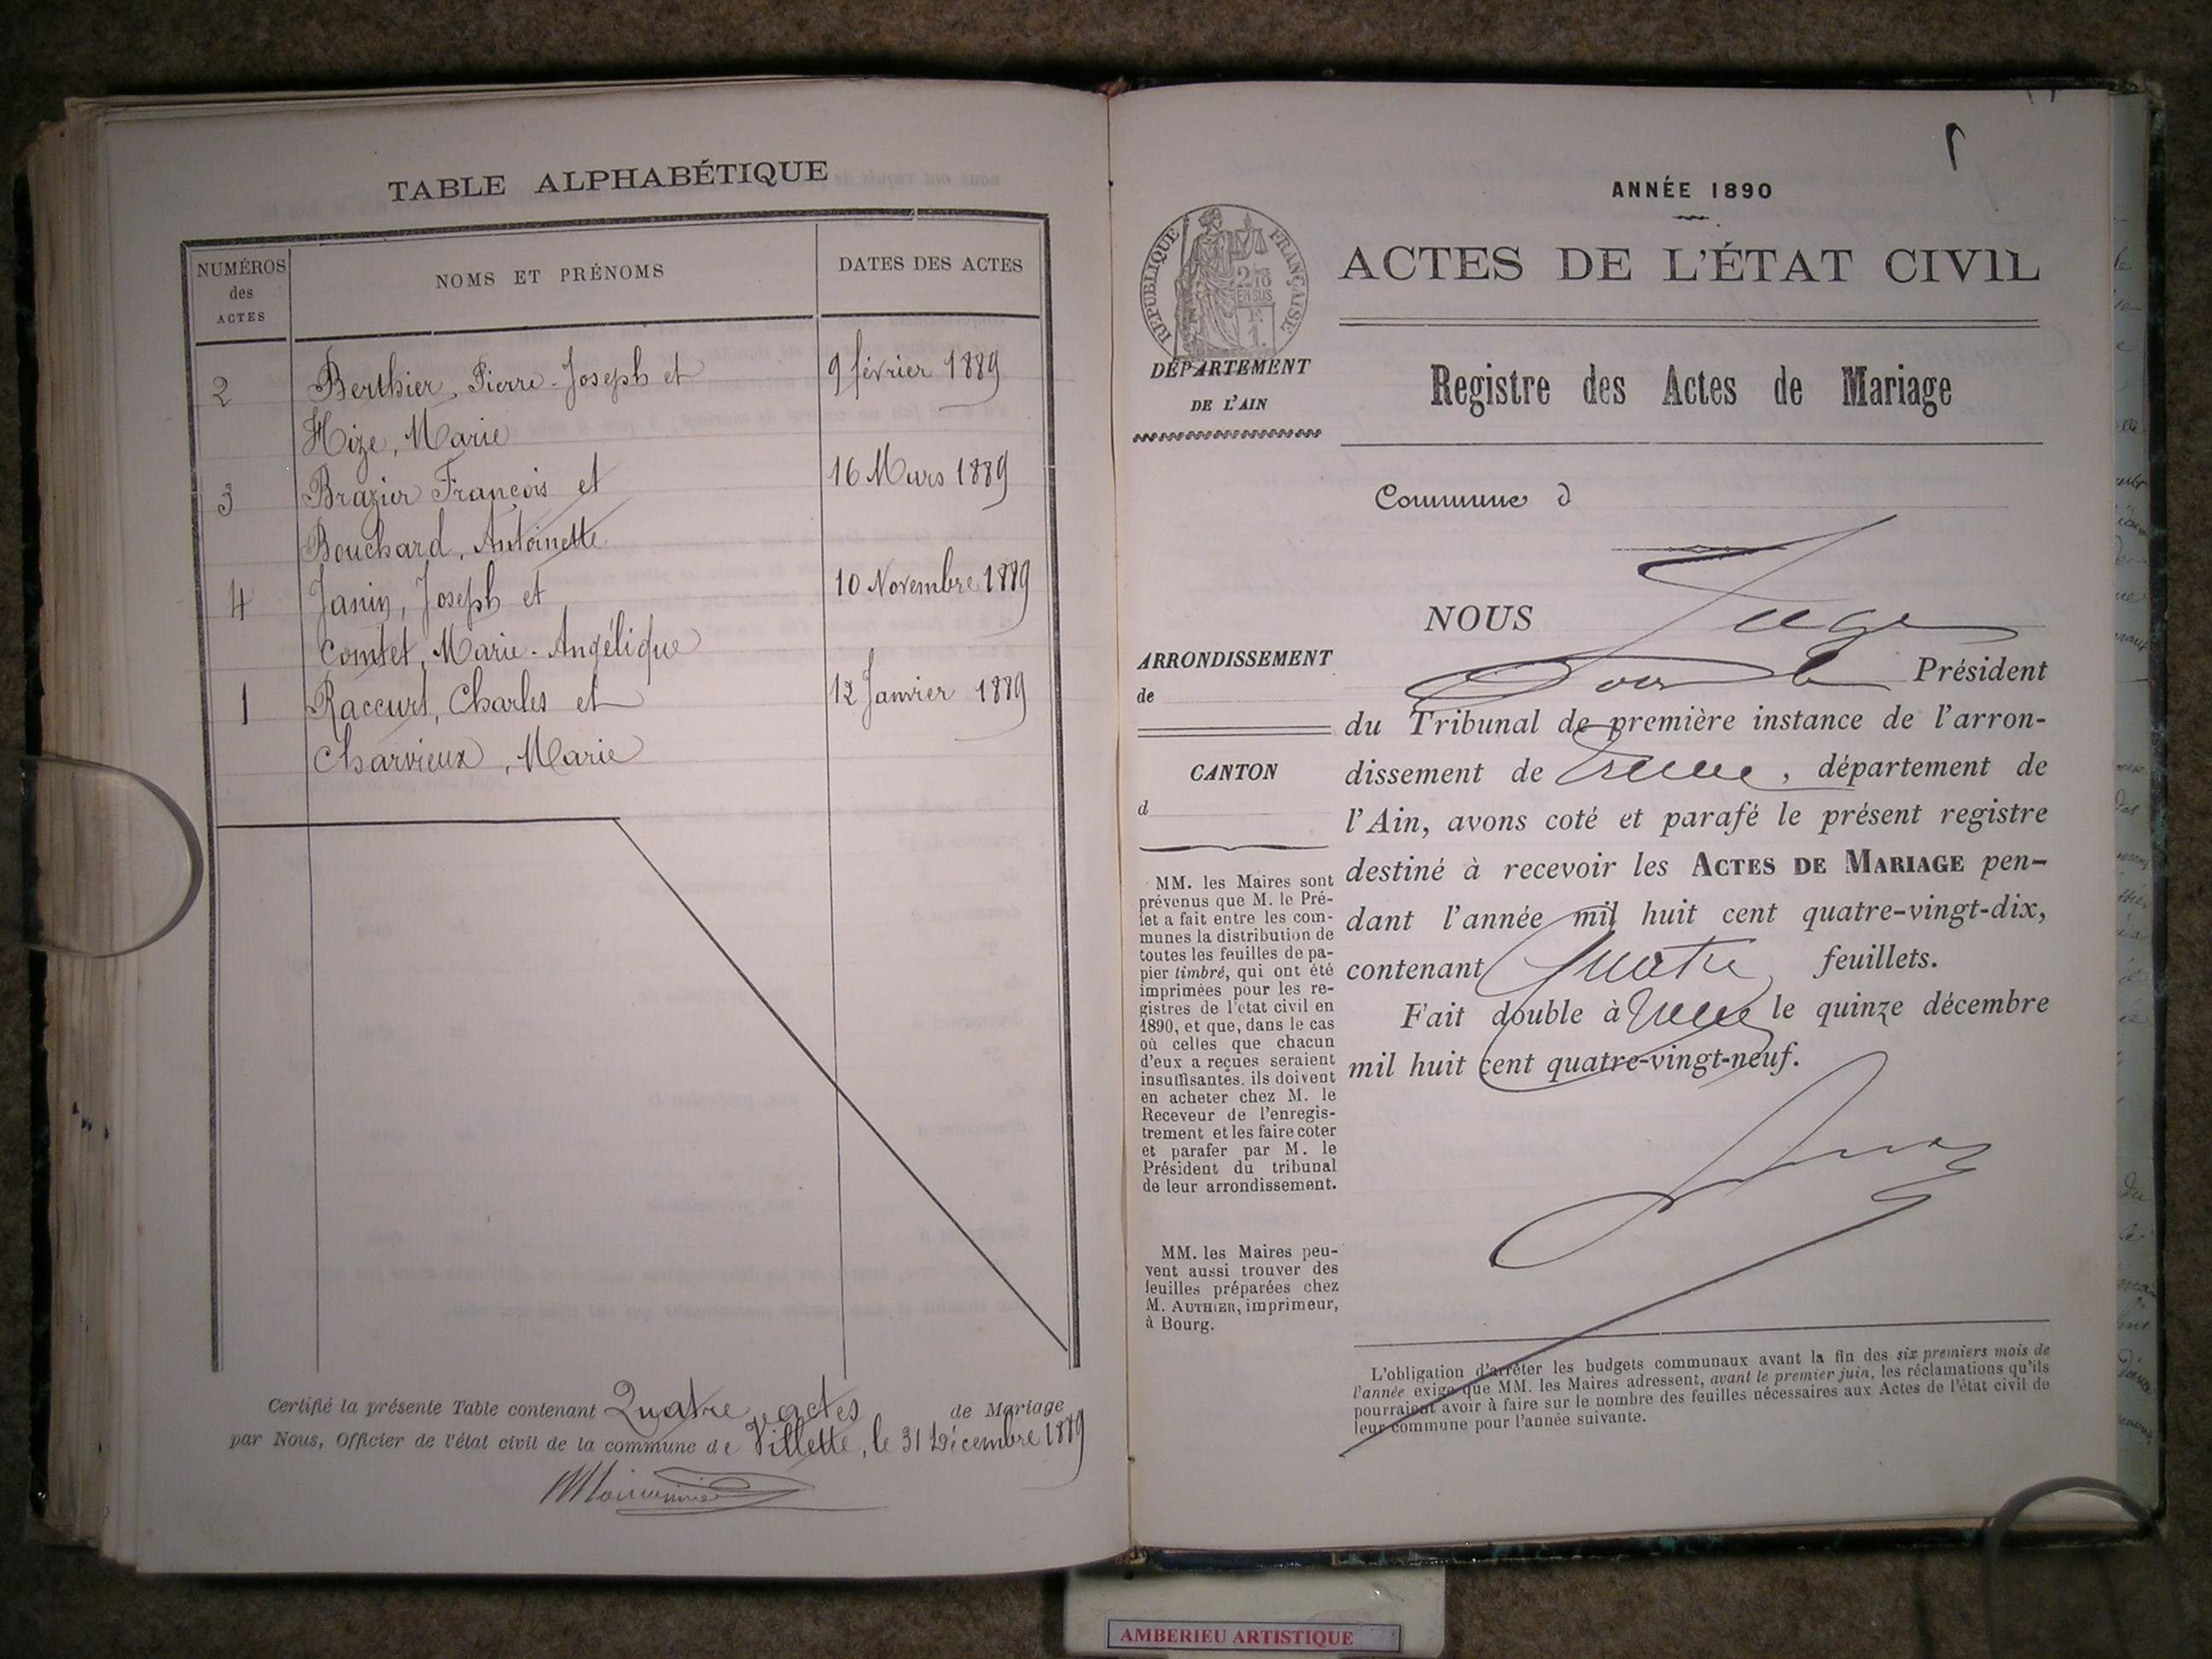 TABLE ALPHABÉTIQUE
NUMÉROS
des
ACTES
NOMS ET PRÉNOMS
DATES DES ACTES
2 Berthier, Pierre-Joseph et 9 février 1889
Hize, Marie
3 Brazier François et 16 Mars 1889
Bouchard, Antoinette
4 Janin, Joseph et 10 Novembre 1889
Comtet, Marie-Angélique
1 Raccurt, Charles et 12 Janvier 1889
Charvieux, Marie
Certifié la présente Table contenant Quatre actes de Mariage
par Nous, Officier de l'état civil de la commune de Villette, le 31 Décembre 1889
ANNÉE 1890
RÉPUBLIQUE FRANÇAISE
2/10
EN SUS
ACTES DE L'ÉTAT CIVIL
DÉPARTEMENT
DE L'AIN
Registre des Actes de Mariage
Commune d
NOUS Juge
ARRONDISSEMENT
de
Président
du Tribunal de première instance de l'arron-
CANTON
d
dissement de , département de
l'Ain, avons coté et parafé le présent registre
destiné à recevoir les ACTES DE MARIAGE pen-
dant l'année mil huit cent quatre-vingt-dix,
contenant quatre feuillets.
Fait double à le quinze décembre
mil huit cent quatre-vingt-neuf.
MM. les Maires sont
prévenus que M. le Pré-
fet a fait entre les com-
munes la distribution de
toutes les feuilles de pa-
pier timbré, qui ont été
imprimées pour les re-
gistres de l'état civil en
1890, et que, dans le cas
où celles que chacun
d'eux a reçues seraient
insuffisantes, ils doivent
en acheter chez M. le
Receveur de l'enregis-
trement et les faire coter
et parafer par M. le
Président du tribunal
de leur arrondissement.
MM. les Maires peu-
vent aussi trouver des
feuilles préparées chez
M. AUTHIER, imprimeur,
à Bourg.
L'obligation d'arrêter les budgets communaux avant la fin des six premiers mois de
l'année exige que MM. les Maires adressent, avant le premier juin, les réclamations qu'ils
pourraient avoir à faire sur le nombre des feuilles nécessaires aux Actes de l'état civil de
leur commune pour l'année suivante.
AMBERIEU ARTISTIQUE